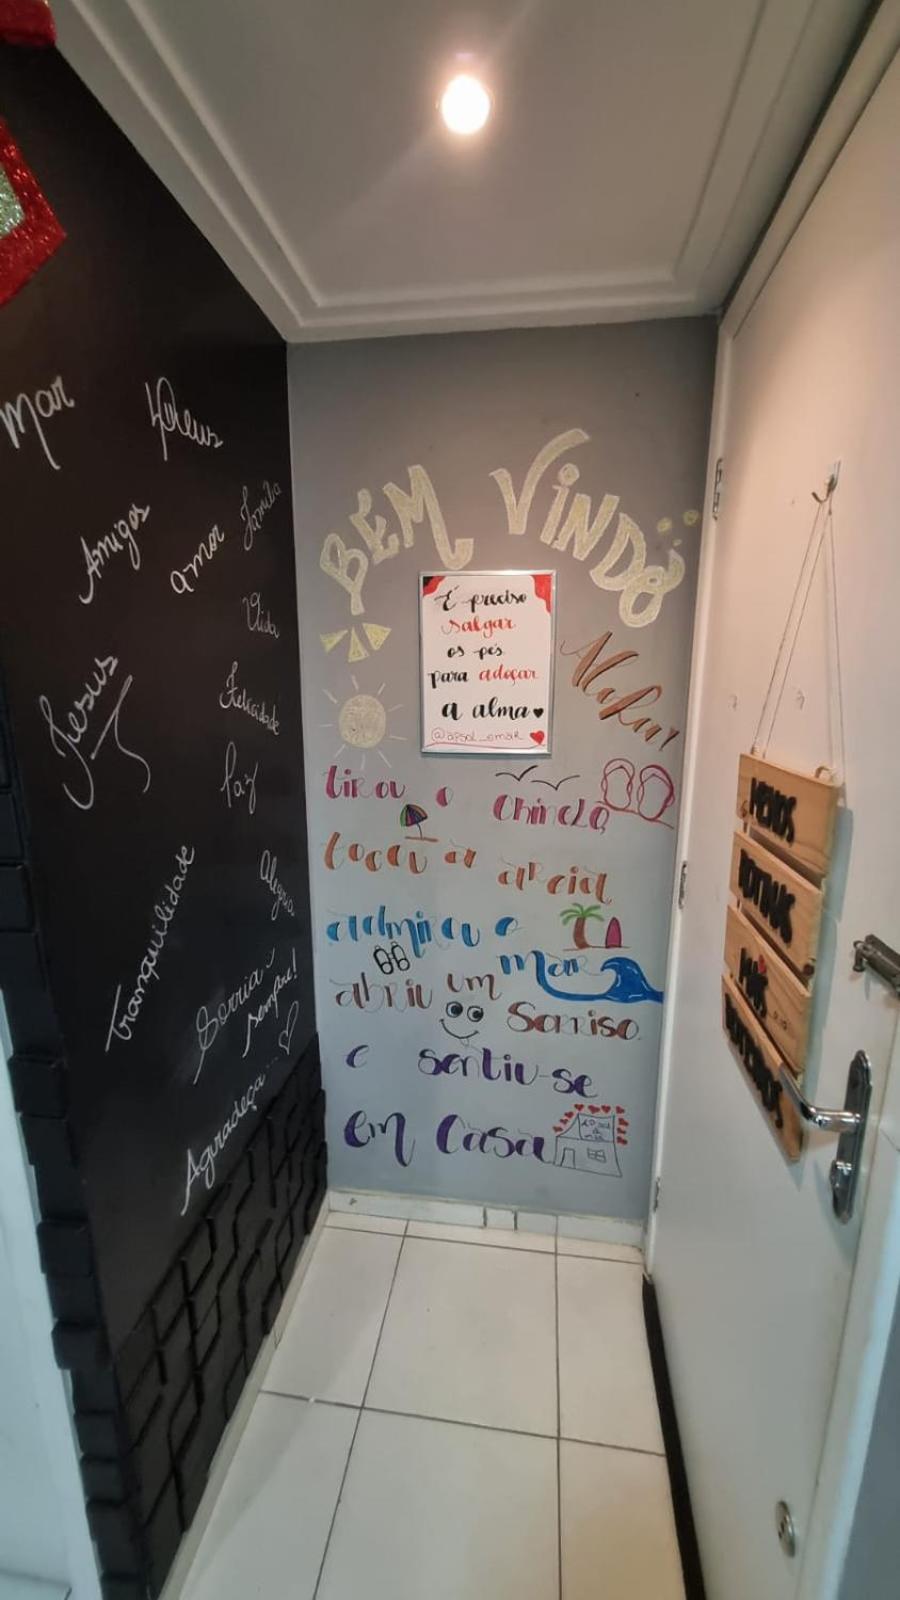 Mar
Deus
Amigos
amor
Família
Vida
Jesus
Felicidade
Paz
Tranquilidade
Alegria
Sorria
sempre!
Agradeça...
BEM VINDO
É preciso
salgar
os pés
para adoçar
a alma
@apsol_emar
Aloha!
tirou o chinelo
tocou a areia
admirou o mar
abriu um sorriso
e sentiu-se
em casa
MENOS
ROTINAS
MAIS